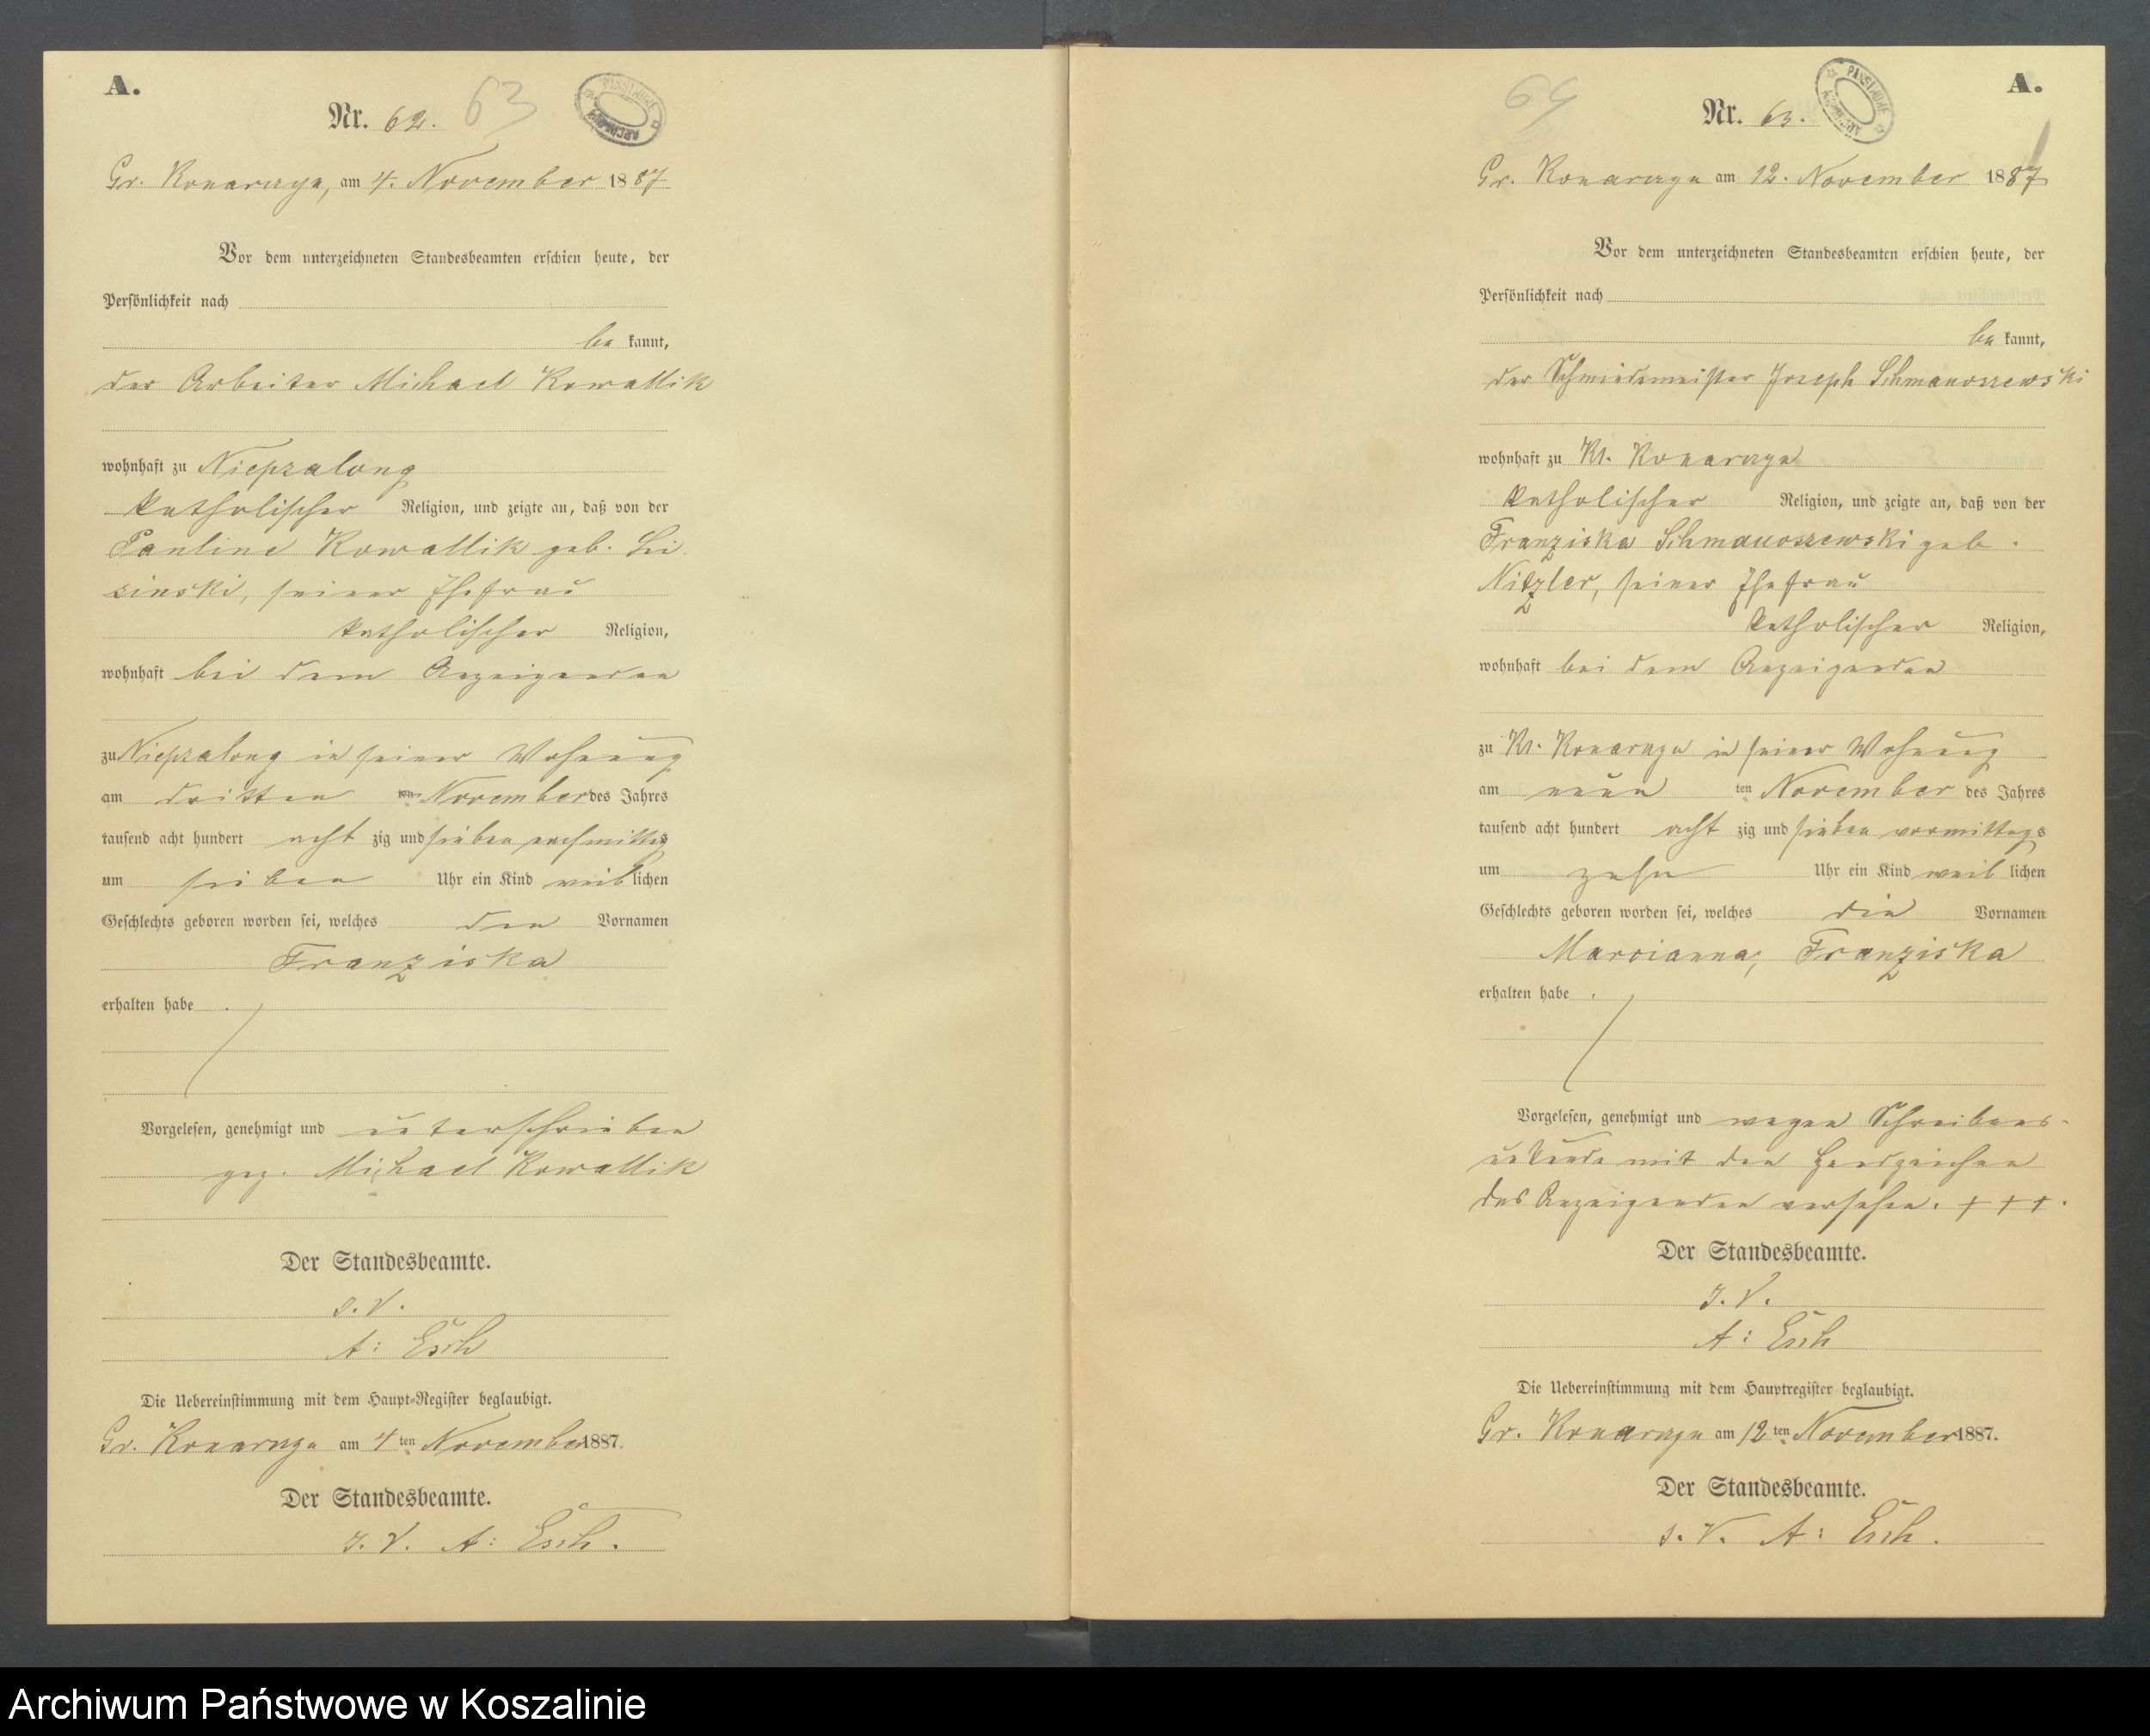 A.
Nr. 62. 63
Gr. Konarczyn, am 4. November 1887
Vor dem unterzeichneten Standesbeamten erschien heute, der
Persönlichkeit nach
be kannt,
der Arbeiter Michael Kowallik
wohnhaft zu Niepszalong
katholischer Religion, und zeigte an, daß von der
Pauline Kowallik geb. Lis
zinski, seiner Ehefrau
katholischer Religion,
wohnhaft bei dem Anzeigenden
zu Niepszalong in seiner Wohnung
am dritten ten November des Jahres
tausend acht hundert acht zig und sieben nachmittags
um sieben Uhr ein Kind weib lichen
Geschlechts geboren worden sei, welches den Vornamen
Franziska
erhalten habe.
Vorgelesen, genehmigt und unterschrieben
gez. Michael Kowallik
Der Standesbeamte.
J. V.
A: Esch
Die Uebereinstimmung mit dem Haupt-Register beglaubigt.
Gr. Konarczyn am 4ten November 1887.
Der Standesbeamte.
J. V. A: Esch.
A.
Nr. 63. 64
Gr. Konarczyn am 12. November 1887
Vor dem unterzeichneten Standesbeamten erschien heute, der
Persönlichkeit nach
be kannt,
der Schmiedemeister Joseph Schmanoszewski
wohnhaft zu Kl. Konarczyn
katholischer Religion, und zeigte an, daß von der
Franziska Schmanoszewski geb.
Nitzler, seiner Ehefrau
katholischer Religion,
wohnhaft bei dem Anzeigenden
zu Kl. Konarczyn in seiner Wohnung
am neun ten November des Jahres
tausend acht hundert acht zig und sieben vormittags
um zehn Uhr ein Kind weib lichen
Geschlechts geboren worden sei, welches die Vornamen
Marcianna, Franziska
erhalten habe.
Vorgelesen, genehmigt und wegen Schreibens-
unkunde mit den Handzeichen
des Anzeigenden versehen. + + +.
Der Standesbeamte.
J. V.
A: Esch
Die Uebereinstimmung mit dem Hauptregister beglaubigt.
Gr. Konarczyn am 12ten November 1887.
Der Standesbeamte.
J. V. A: Esch.
Archiwum Państwowe w Koszalinie